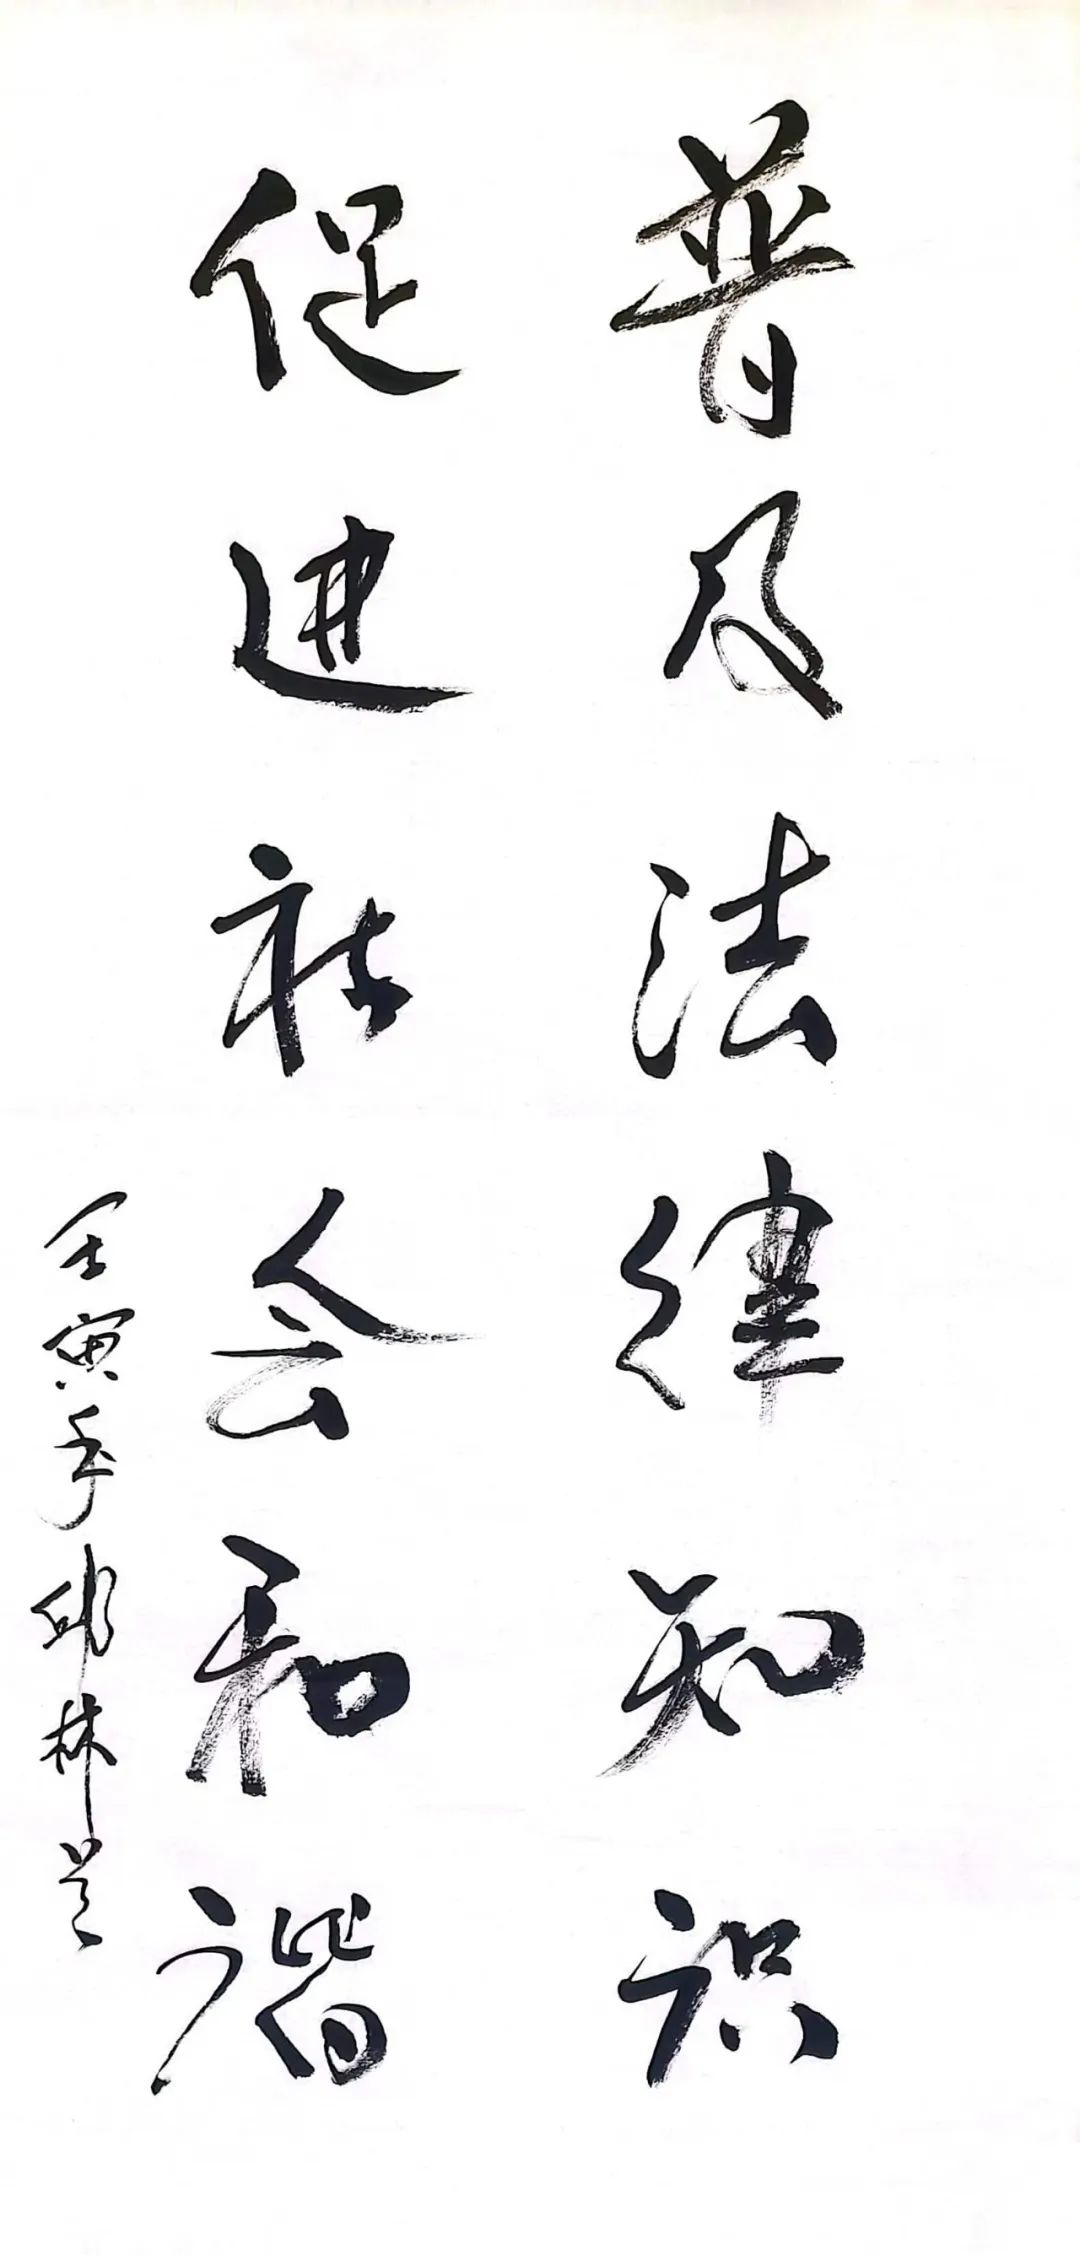 普及法律知识
促进社会和谐
壬寅年邱林兰